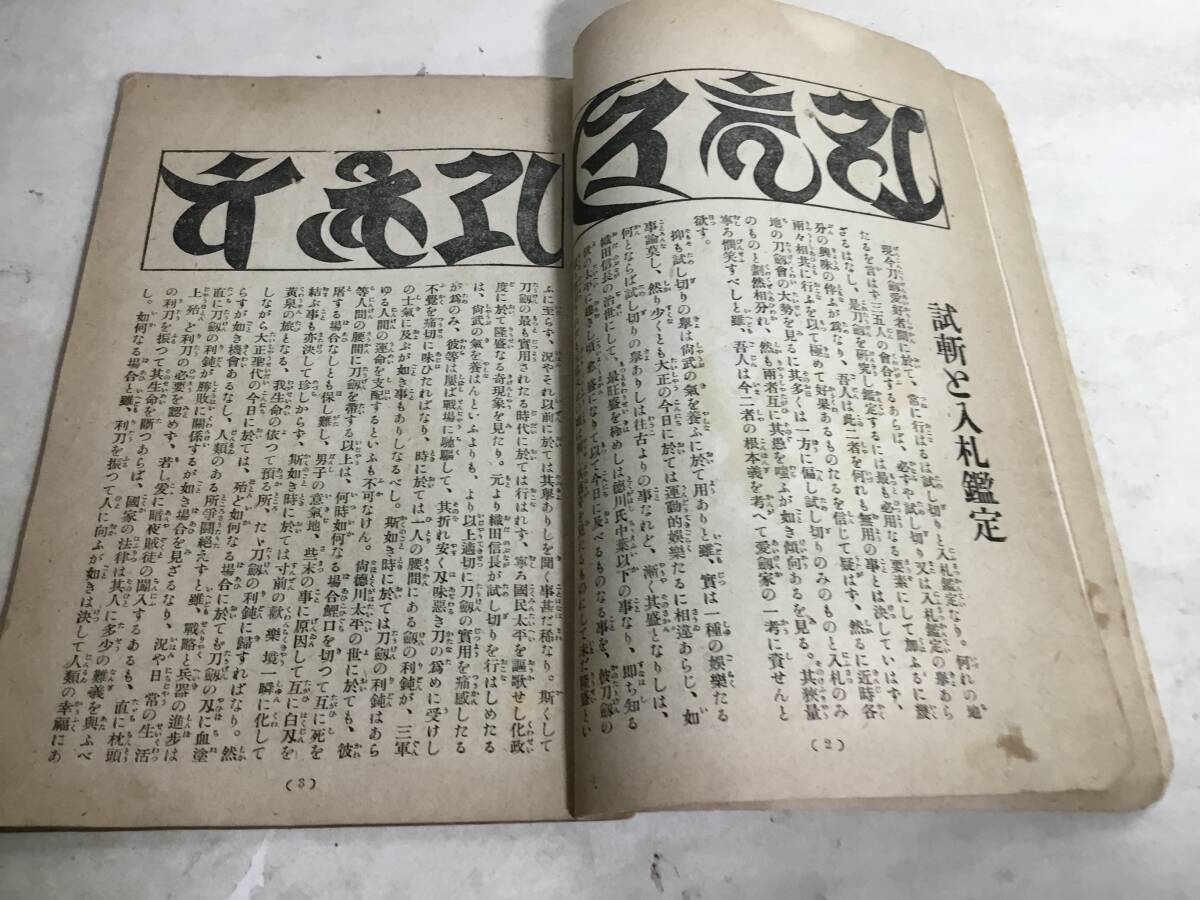 試斬と入札鑑定
現今刀劔愛好者間に於て、常に行はるは試し切りと入札鑑定なり。何れの地
たるを言はず三五人の會合するあらば、必ずや試し切り又は入札鑑定の擧あら
ざるはなし、是刀劔を研究し鑑定するには最も必用なる要素にして加ふるに幾
分の興味の伴ふが爲なり、吾人は此二者を何れも無用の事とは決していはず、
兩々相共に行ふを以て極めて好果あるものたるを信じて疑はず、然るに近時各
地の刀劔會の大勢を見るに其多くは一方に偏し試し切りのみのものと入札のみ
のものと割然相分れ、然も兩者互に其愚を嗤ふが如き傾向あるを見る。其狹量
寧ろ憫笑すべしと雖、吾人は今二者の根本義を考へて愛劔家の一考に資せんと
欲す。
抑も試し切りの擧は尙武の氣を養ふに於て用ありと雖、實は一種の娯樂たる
事論莫し、然り少くとも大正の今日に於ては運動的娯樂たるに相違あらじ、如
何とならば試し切りの擧ありしは往古よりの事なれど、漸く其盛となりしは、
織田信長の治世にして、最旺盛を極めしは德川氏中葉以下の事なり、即ち知る
(2)
ふに至らず、況やそれ以前に於ては其擧ありしを聞く事甚だ稀なり。斯くして
刀劔の最も實用されたる時代に於ては行はれず、寧ろ國民太平を謳歌せし化政
度に於て隆盛なる奇現象を見たり。元より織田信長が試し切りを行はしめたる
は、尙武の氣を養はんといふよりも、より以上適切に刀劔の實用を痛感したる
が爲のみ、彼等は屢ば戰場に馳驅して、其折れ安く刄味惡き刀の爲めに受けし
不覺を痛切に味ひたればなり、時に於ては一人の腰間にある劔の利鈍が、三軍
の士氣に及ぶが如き事もありしなるべし。斯如き時に於ては刀劔の利鈍はあら
ゆる人間の運命を支配するといふも不可なけん。尙德川太平の世に於ても、彼
等人間の腰間に刀劔を帶する以上は、何時如何なる場合鯉口を切つて互に死を
屠する場合なしとも保し難し、男子の意氣地、些末の事に原因して互に白刄を
結ぶ事も亦決して珍しからず、斯如き時に於ては寸前の歡樂境一瞬に化して
黃泉の旅となる、我生命の依つて預る所、たゞ刀劔の利鈍に歸すればなり。然
しながら大正聖代の今日に於ては、殆ど如何なる場合に於ても刀劔の刄に血塗
らすが如き機會あるなし、人類のある所爭鬪絕えずと雖、戰略と兵器の進步は
直に刀劔の利鈍が勝敗に關係するが如き場合を見ざるなり、況や日常の生活
上殆ど利刀の必要を認めず、若し爰に暗夜賊徒の闖入するあるも、直に枕頭
の利刀を振つて其生命を斷つあらば、國家の法律は其人に多少の難義を與ふべ
し。如何なる場合と雖、利刀を振つて人に向ふが如きは決して人類の幸福にあ
(3)